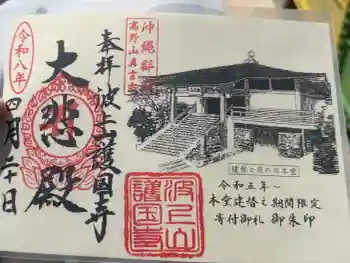 令和八年
四月二十日
大悲殿
奉拝 波上護国寺
沖縄郡
高野山真言
建替え前の旧本堂
令和五年～
本堂建替え期間限定
寄付御札 御朱印
波上山
護国寺